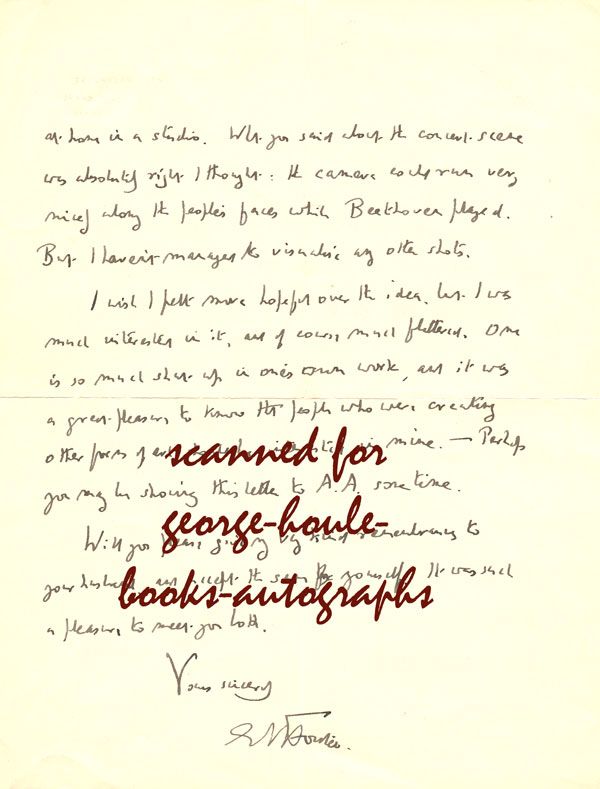 at home in a studio. What you said about the concert-scene
was absolutely right I thought: the camera could run very
nicely along the people's faces while Beethoven played.
But I haven't managed to visualise any other shots.
I wish I felt more hopeful over the idea, but I was
much interested in it, and of course much flattered. One
is so much shut up in one's own work, and it was
a great pleasure to know that people who were creating
other forms of art interested in mine. — Perhaps
you may be showing this letter to A.A. some time.
Will you please give my kind remembrances to
your husband and accept the same for yourself. It was such
a pleasure to meet you both.
Yours sincerely
EM Forster.
scanned for
george-houle-
books-autographs